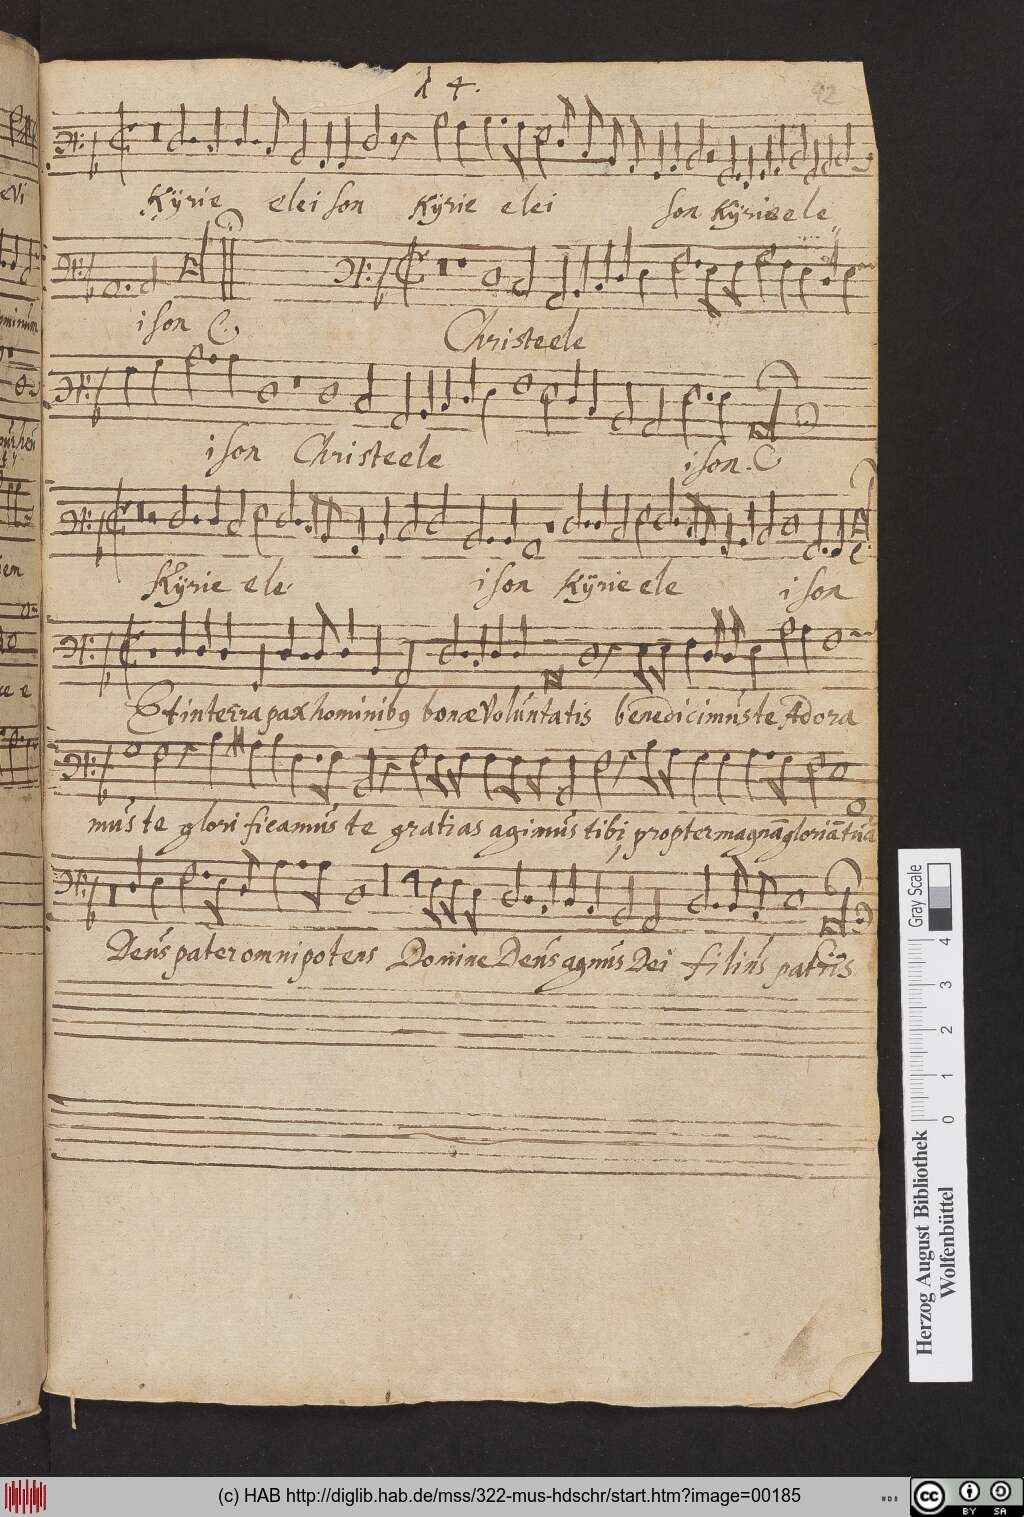 â 4.
92
Kÿrie elei son Kÿrie elei son Kÿrie ele
i son C
Christe ele
i son Christe ele i son. C
Kÿrie ele i son Kÿrie ele i son
Et in terra pax hominibꝯ bonæ voluntatis benedicimus te Adora
mus te glori ficamus te gratias agimus tibi, propter magnā gloriā tuā
Deus pater omnipotens Domine Deus agnus Dei filius patris
Gray Scale
4
3
2
1
0
Herzog August Bibliothek
Wolfenbüttel
(c) HAB http://diglib.hab.de/mss/322-mus-hdschr/start.htm?image=00185
cc BY SA